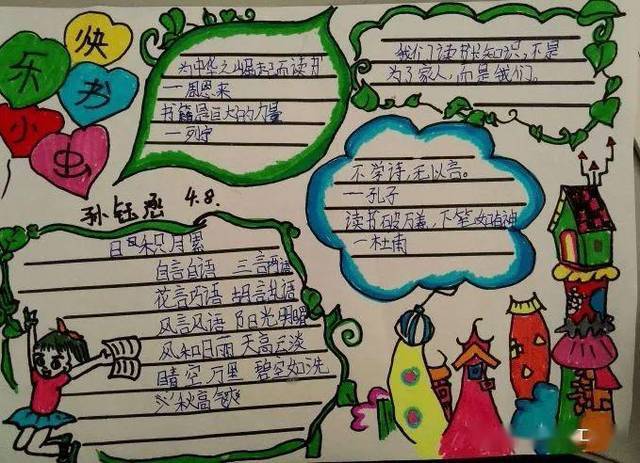 快乐书小虫
为中华之崛起而读书
一周恩来
书籍是巨大的力量
一列宁
我们读书知识,不是
为了家人,而是我们。
不学诗,无以言。
一孔子
读书破万卷,下笔如有神
一杜甫
孙钰 4.8.
日日积月累
自言自语 三言两语
花言巧语 胡言乱语
风言风语 阳光明媚
风和日丽 天高云淡
晴空万里 碧空如洗
秋高气爽
工